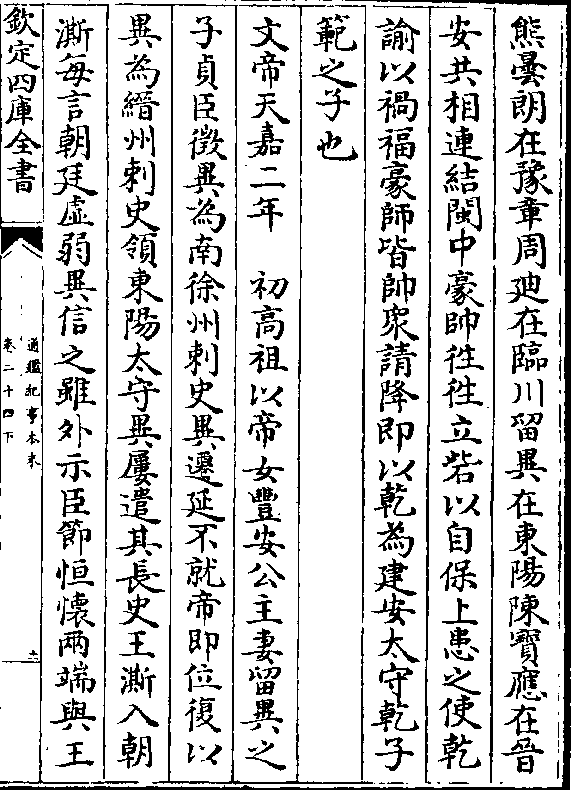 熊曇朗在豫章周廸在臨川留異在東陽陳寳應在晉
安共相連結閩中豪帥徃徃立砦以自保上患之使乾
諭以禍福豪師皆帥衆請降即以乾為建安太守乾子
範之子也
文帝天嘉二年　初高祖以帝女豐安公主妻留異之
子貞臣徴異為南徐州刺史異遷延不就帝即位復以
異為縉州刺史領東陽太守異屢遣其長史王澌入朝
澌每言朝廷虚弱異信之雖外示臣節恒懷兩端與王
欽定四庫全書
通鑑紀事本末
卷二十四下
十二